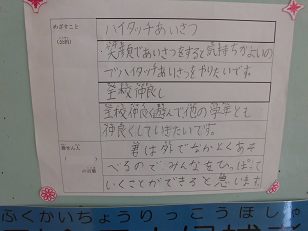 めざすこと
(公約)
ハイタッチあいさつ
・笑顔であいさつをすると気持ちがよいの
でハイタッチあいさつをやりたいです。
全校仲良し
全校仲良く遊んで他の学年とも
仲良くしていきたいです。
責任人
の言葉
君は外でなかよくあそ
べるのでみんなをひっぱって
いくことができると思います。
ふくかいちょうりっこうほしゃ